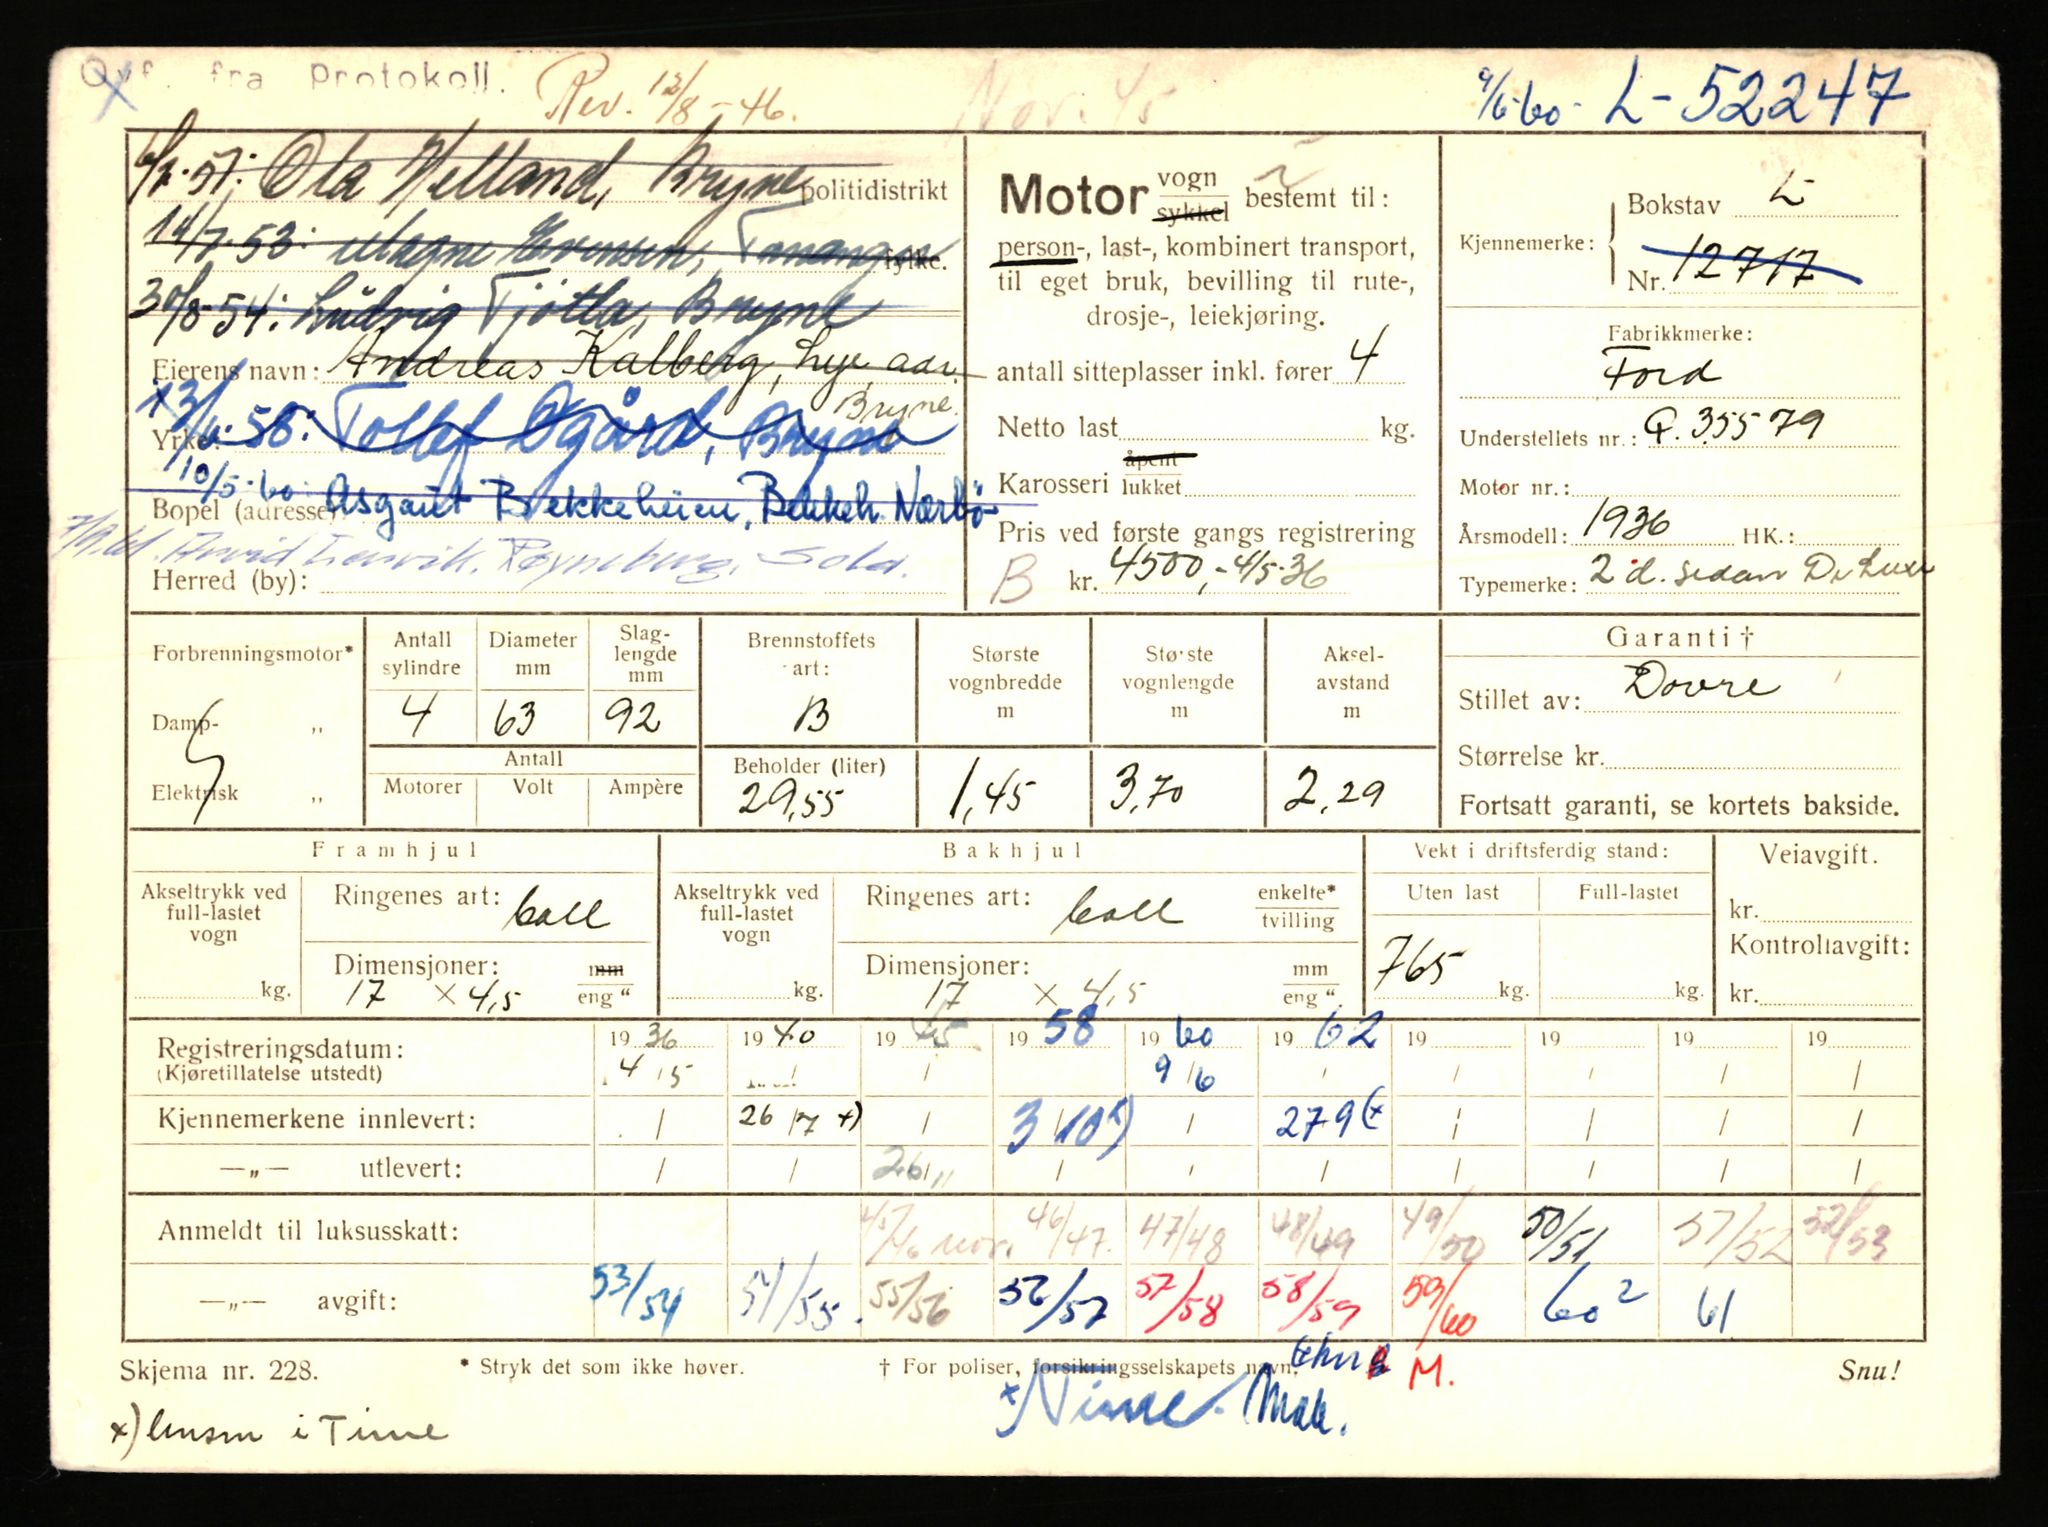 Ovf. fra Protokoll. Rev. 12/8-46. Nov. 45 9/6-60- L-52247
6/2-57: Ola Helland, Bryne politidistrikt
14/7-53: Magne Evensen, Tananger fylke.
30/8-54: Ludvig Tjötta, Bryne
Eierens navn: Andreas Kalberg, Lye, adr. Bryne.
Yrke: 58: Tollef Øgård, Bryne
10/5-60: Asgaut Brekkeheien, Bekkeh. Nærbö
Bopel (adresse):
Arvid, Røyneberg, Sola.
Herred (by):
Motor vogn
sykkel bestemt til:
person-, last-, kombinert transport,
til eget bruk, bevilling til rute-,
drosje-, leiekjøring.
antall sitteplasser inkl. fører 4
Netto last kg.
Karosseri åpent
lukket
Pris ved første gangs registrering
B kr. 4500,- 4/5-36
Kjennemerke: Bokstav L
Nr. 12717
Fabrikkmerke:
Ford
Understellets nr.: 35579
Motor nr.:
Årsmodell: 1936 HK.:
Typemerke: 2 d. sedan De Luxe
Forbrenningsmotor*
Damp- „
Elektrisk „
Antall sylindre Diameter mm Slag-lengde mm
4 63 92
Antall
Motorer Volt Ampère
Brennstoffets art:
B
Beholder (liter)
29,55
Største vognbredde m
1,45
Største vognlengde m
3,70
Aksel-avstand m
2,29
Garanti †
Stillet av: Dovre
Størrelse kr.
Fortsatt garanti, se kortets bakside.
Framhjul Bakhjul Vekt i driftsferdig stand: Veiavgift.
Akseltrykk ved full-lastet vogn kg.
Ringenes art: ball
Dimensjoner: mm
17 × 4,5 eng "
Akseltrykk ved full-lastet vogn kg.
Ringenes art: ball enkelte*
tvilling
Dimensjoner: mm
17 × 4,5 eng "
Uten last Full-lastet
765 kg. kg.
kr.
Kontrollavgift:
kr.
Registreringsdatum: 1936 1940 1945 1958 1960 1962 19 19 19 19
(Kjøretillatelse utstedt) 4/5 / / 9/6 / / / / /
Kjennemerkene innlevert: / 26/7 x) / 3/10 x) / 27 9 (x / / / /
—„— utlevert: / / 26/11 / / / / / / /
Anmeldt til luksusskatt: 45/46 nov. 46/47. 47/48 48/49 49/50 50/51 51/52 52/53
—„— avgift: 53/54 54/55. 55/56 56/57 57/58 58/59 59/60 60² 61
Skjema nr. 228. * Stryk det som ikke høver. † For poliser, forsikringsselskapets navn. M. Snu!
x) Time.
x) i Time